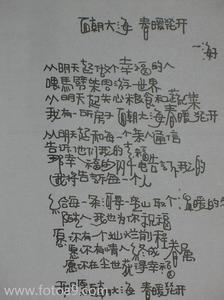 面朝大海 春暖花开
一海子
从明天起做个幸福的人
喂马劈柴周游世界
从明天起关心粮食和蔬菜
我有一所房子 面朝大海春暖花开
从明天起和每一个亲人通信
告诉他们我的幸福
那幸福的闪电告诉我的
我将告诉每一个人
给每一条河每一座山取个温暖的
陌生人我也为你祝福
愿你有一个灿烂前程
愿你有情人终成眷属
愿你在尘世获得幸福
大海 春暖花开
www.fota99.com